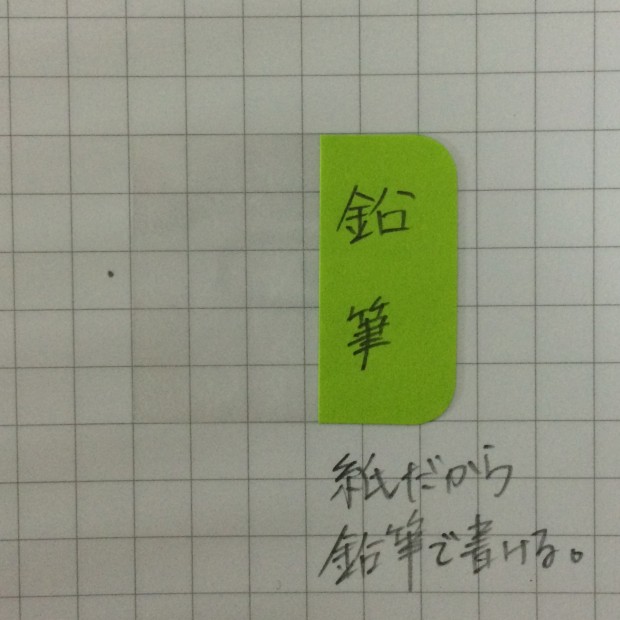 鉛筆
紙だから
鉛筆で書ける。